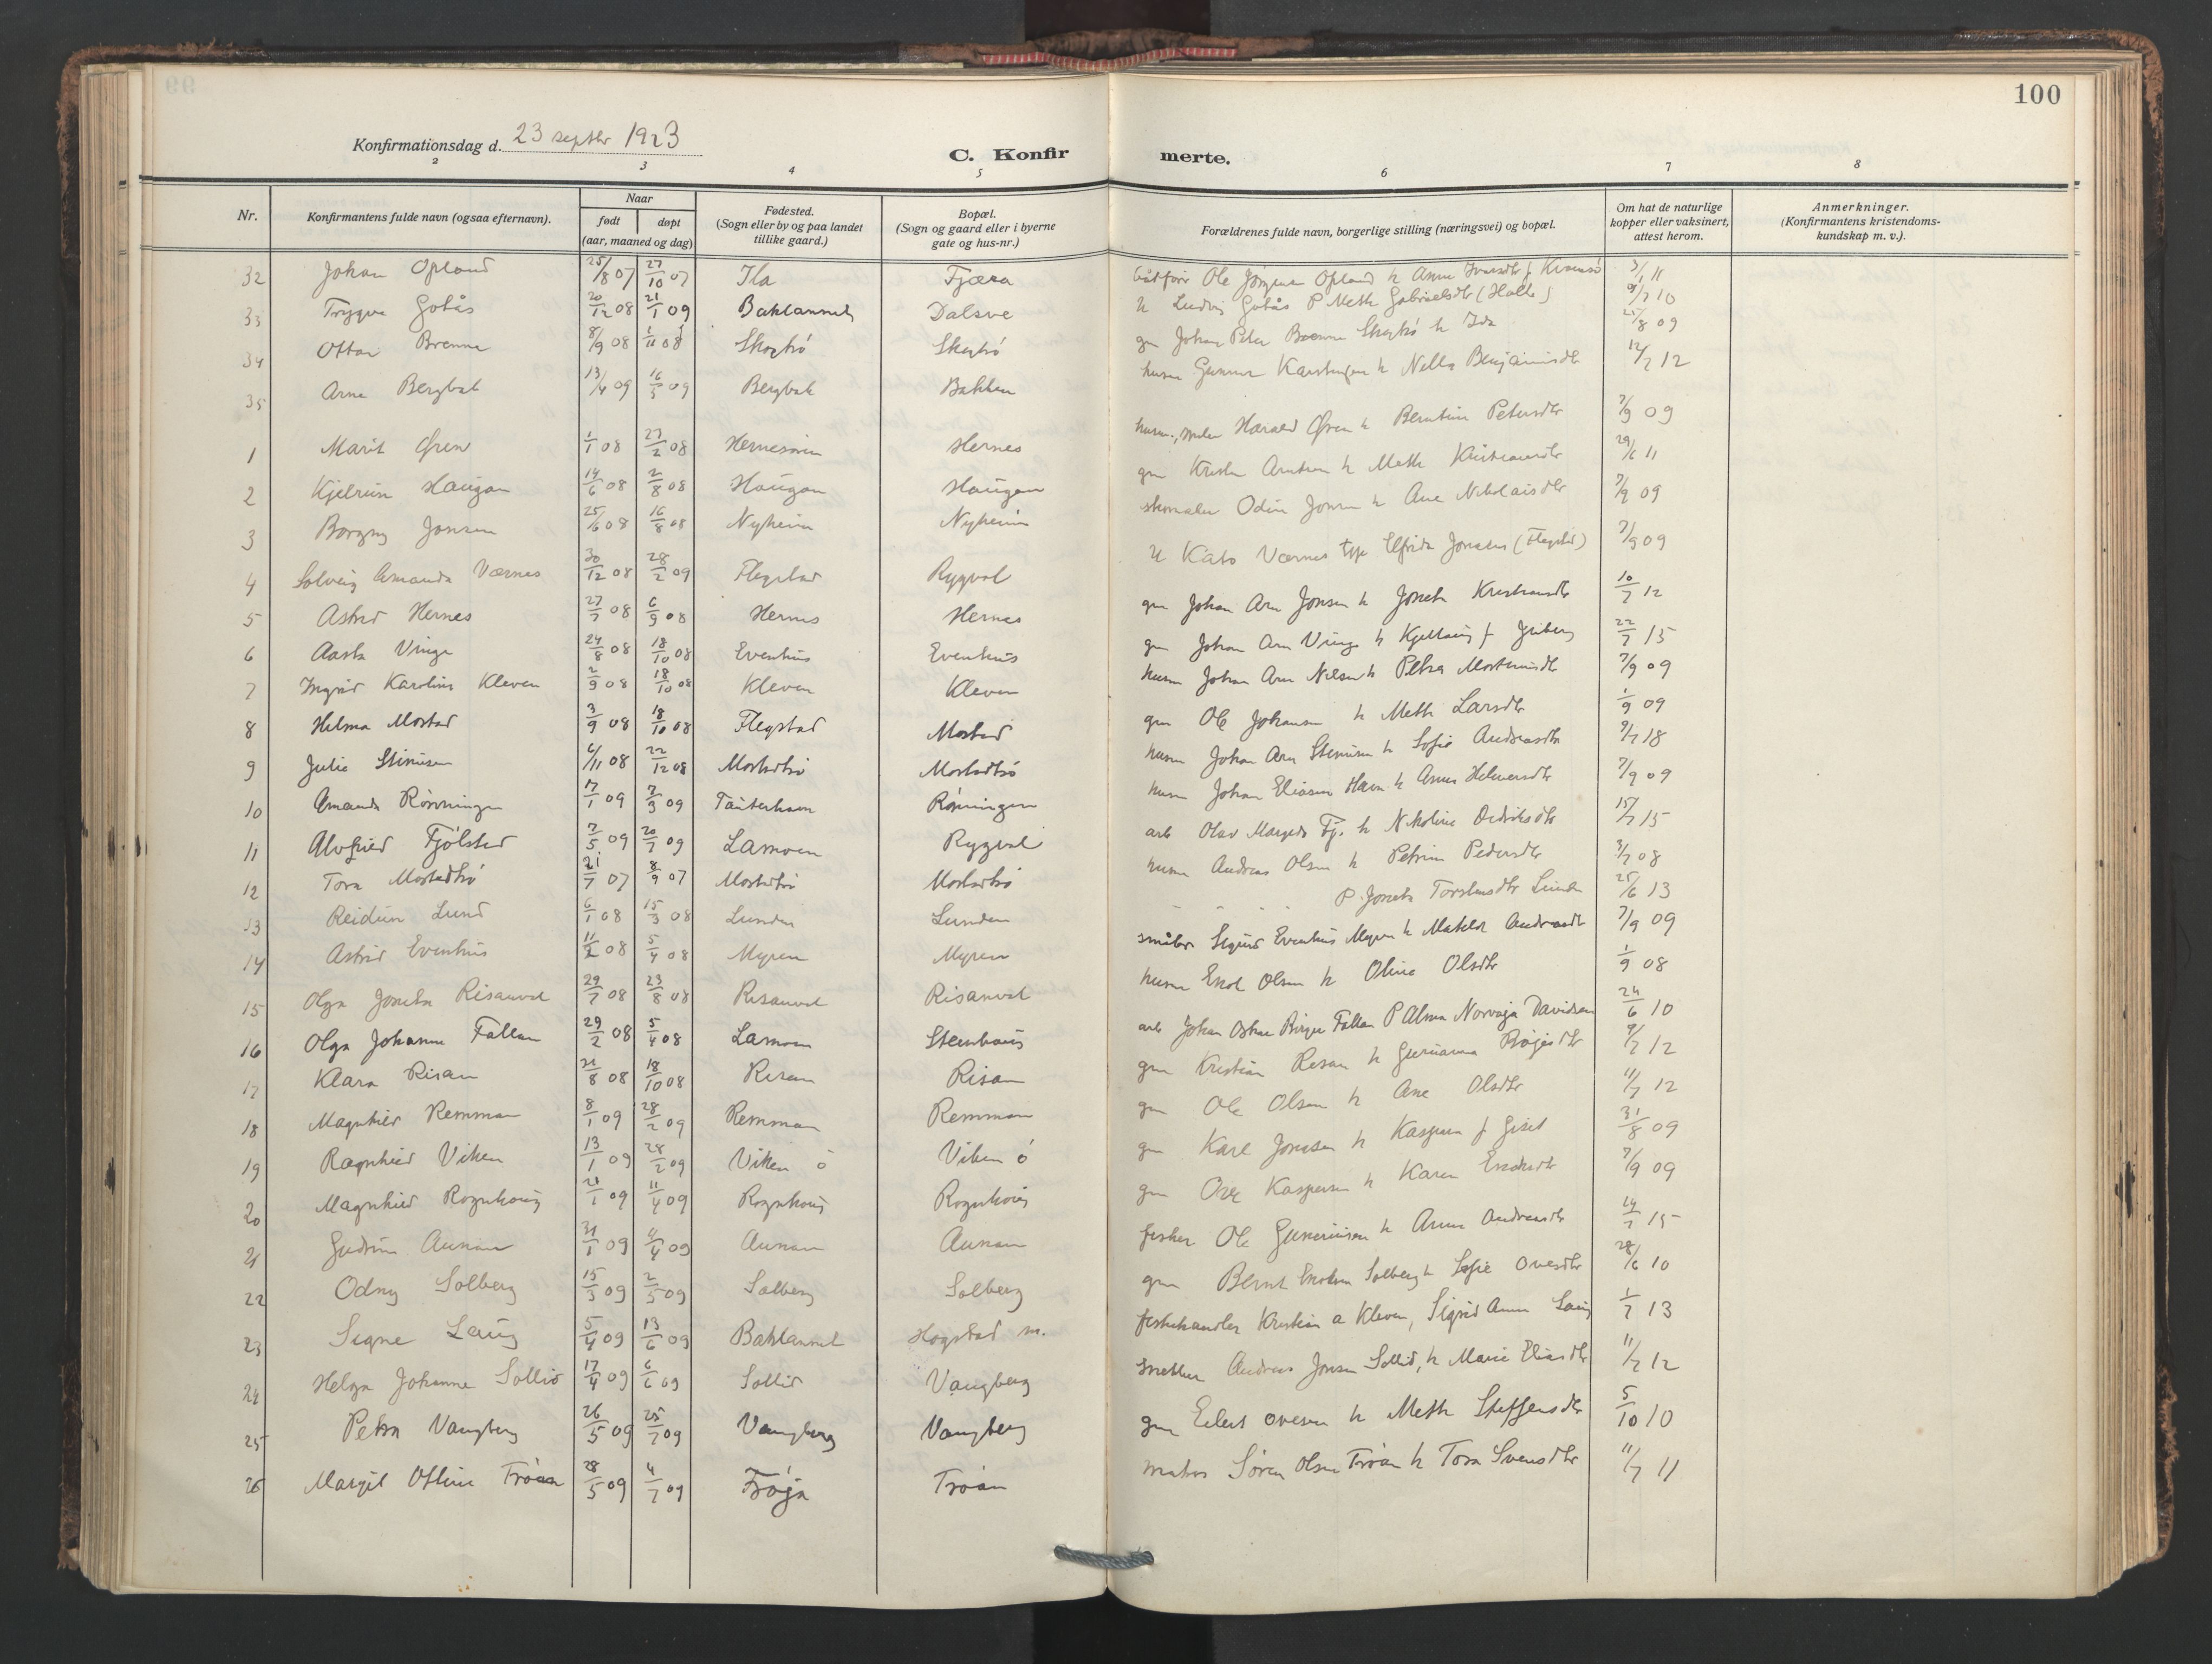 100
Konfirmationsdag d. 23 septbr 1923
C. Konfirmerte.
2 3 4 5 6 7 8
Nr.
Konfirmantens fulde navn (ogsaa efternavn).
Naar
født døpt
(aar, maaned og dag)
Fødested.
(Sogn eller by og paa landet
tillike gaard.)
Bopæl.
(Sogn og gaard eller i byerne
gate og hus-nr.)
Forældrenes fulde navn, borgerlige stilling (næringsvei) og bopæl.
Om hat de naturlige
kopper eller vaksinert,
attest herom.
Anmerkninger.
(Konfirmantens kristendoms-
kundskap m. v.).
32 Johan Opland 25/8 07 27/10 07 Ila Fjæra Ole Jörgen Opland h Anna 3/1 11
33 Trygve Gotås 20/12 08 21/1 09 Baklannet Dalsve U Ludvig Gotås P Meth Gabrielsdtr (Halle) 10
34 Ottar Brenne 8/9 08 1/11 08 Skogtrö Skogtrö gm Johan Peter Brenne Skogtrö h Ida 25/8 09
35 Arne Bergbak 13/4 09 16/5 09 Bergbak Bakken husm Gunnar Karstensen h Nella Benjaminsdtr 12/7 12
1 Marit Ören 1/1 08 23/2 08 Hernesören Hernes husm., Harald Ören h Berntine Petersdtr 7/9 09
2 Kjelrun Haugan 14/6 08 2/8 08 Haugan Haugan gm Arntsen h Meth Kristiansdtr 29/6 11
3 Borgny Jonsen 25/6 08 16/8 08 Nyheim Nyheim skomaker Odin Jonsen h Ane Nikolaisdtr 7/9 09
4 Solveig Amanda Værnes 30/12 08 28/2 09 Flegstad Rygvol U Kato Værnes Elfrida (Flegstad) 7/9 09
5 Astrid Hernes 27/7 08 6/9 08 Hernes Hernes gm Johan Arn Jonsen h Joneta Kristiansdtr 10/7 12
6 Aasta Vinge 24/8 08 18/10 08 Evenhus Evenhus gm Johan Arn Vinge h Kjellaug f 22/7 15
7 Ingrid Karoline Kleven 2/9 08 18/10 08 Kleven Kleven husm Johan Arn Nilsen h Petra Mortensdtr 7/9 09
8 Helma Mostad 3/9 08 18/10 08 Flegstad Mostad gm Ole Johansen h Meth Larsdtr 1/9 09
9 Julie Stinusen 6/11 08 22/12 08 Mostadtrö Mostadtrö husm Johan Arn Stinusen h Sofie Andreasdtr 9/7 18
10 Amanda Rönningen 17/1 09 7/3 09 Tauterhavn Rönningen husm Johan Eliasen Havn h Anna Helmersdtr 7/9 09
11 Alvfried Fjölstad 7/5 09 20/7 09 Lamoen Rygvol arb Olav Fj. h Nikoline Dedriksdtr 15/7 15
12 Tora Mostadtrö 21/7 07 8/9 07 Mostadtrö Mostadtrö husm Andreas Olsen h Petrine Pedersdtr 3/7 08
13 Reidun Lund 6/1 08 15/3 08 Lunden Lunden P. Joneta Torstensdtr Lunden 25/6 13
14 Astrid Evenhus 11/2 08 5/4 08 Myren Myren småbr Sigurd Evenhus Myren h Matilda Andreasdtr 7/9 09
15 Olga Joneta Risanvol 29/7 08 23/8 08 Risanvol Risanvol husm Enok Olsen h Oline Olsdtr 1/9 08
16 Olga Johanne Fallan 29/2 08 5/4 08 Lamoen Stenhaug arb Johan Oskar Birger Fallan P Alma Norveja Davidsen 24/6 10
17 Klara Risan 21/8 08 18/10 08 Risan Risan gm Kristian Risan h Gurianna 9/7 12
18 Magnhild Remman 8/1 09 28/2 09 Remman Remman gm Ole Olsen h Ane Olsdtr 11/7 12
19 Ragnhild Viken 13/1 09 28/2 09 Viken ö Viken ö gm Karl Jonsen h f Giset 31/8 09
20 Magnhild Rognhaug 21/1 09 11/4 09 Rognhaug Rognhaug gm Ove Kaspersen h Karen Enoksdtr 7/9 09
21 Gudrun Aunan 31/1 09 4/4 09 Aunan Aunan fisker Ole Guneriusen h Anna Andreasdtr 14/7 15
22 Odny Solberg 15/3 09 2/5 09 Solberg Solberg gm Bernt Enoksen Solberg h Sofie Ovesdtr 28/6 10
23 Signe Laug 5/4 09 13/6 09 Baklannet Hogstad m. fiskehandler Kristian a Kleven, Sigrid Anna Laug 1/7 13
24 Helga Johanne Sollid 17/4 09 6/6 09 Sollid Vangberg snekker Andreas Jonsen Sollid, h Marie Eliasdtr 11/7 12
25 Petra Vangberg 26/5 09 25/7 09 Vangberg Vangberg gm Eilert Ovesen h Meth Steffensdtr 5/10 10
26 Margit Ofline Tröan 28/5 09 4/7 09 Fröja Tröan matros Sören Olsen Tröan h Tora Svensdtr 11/7 11